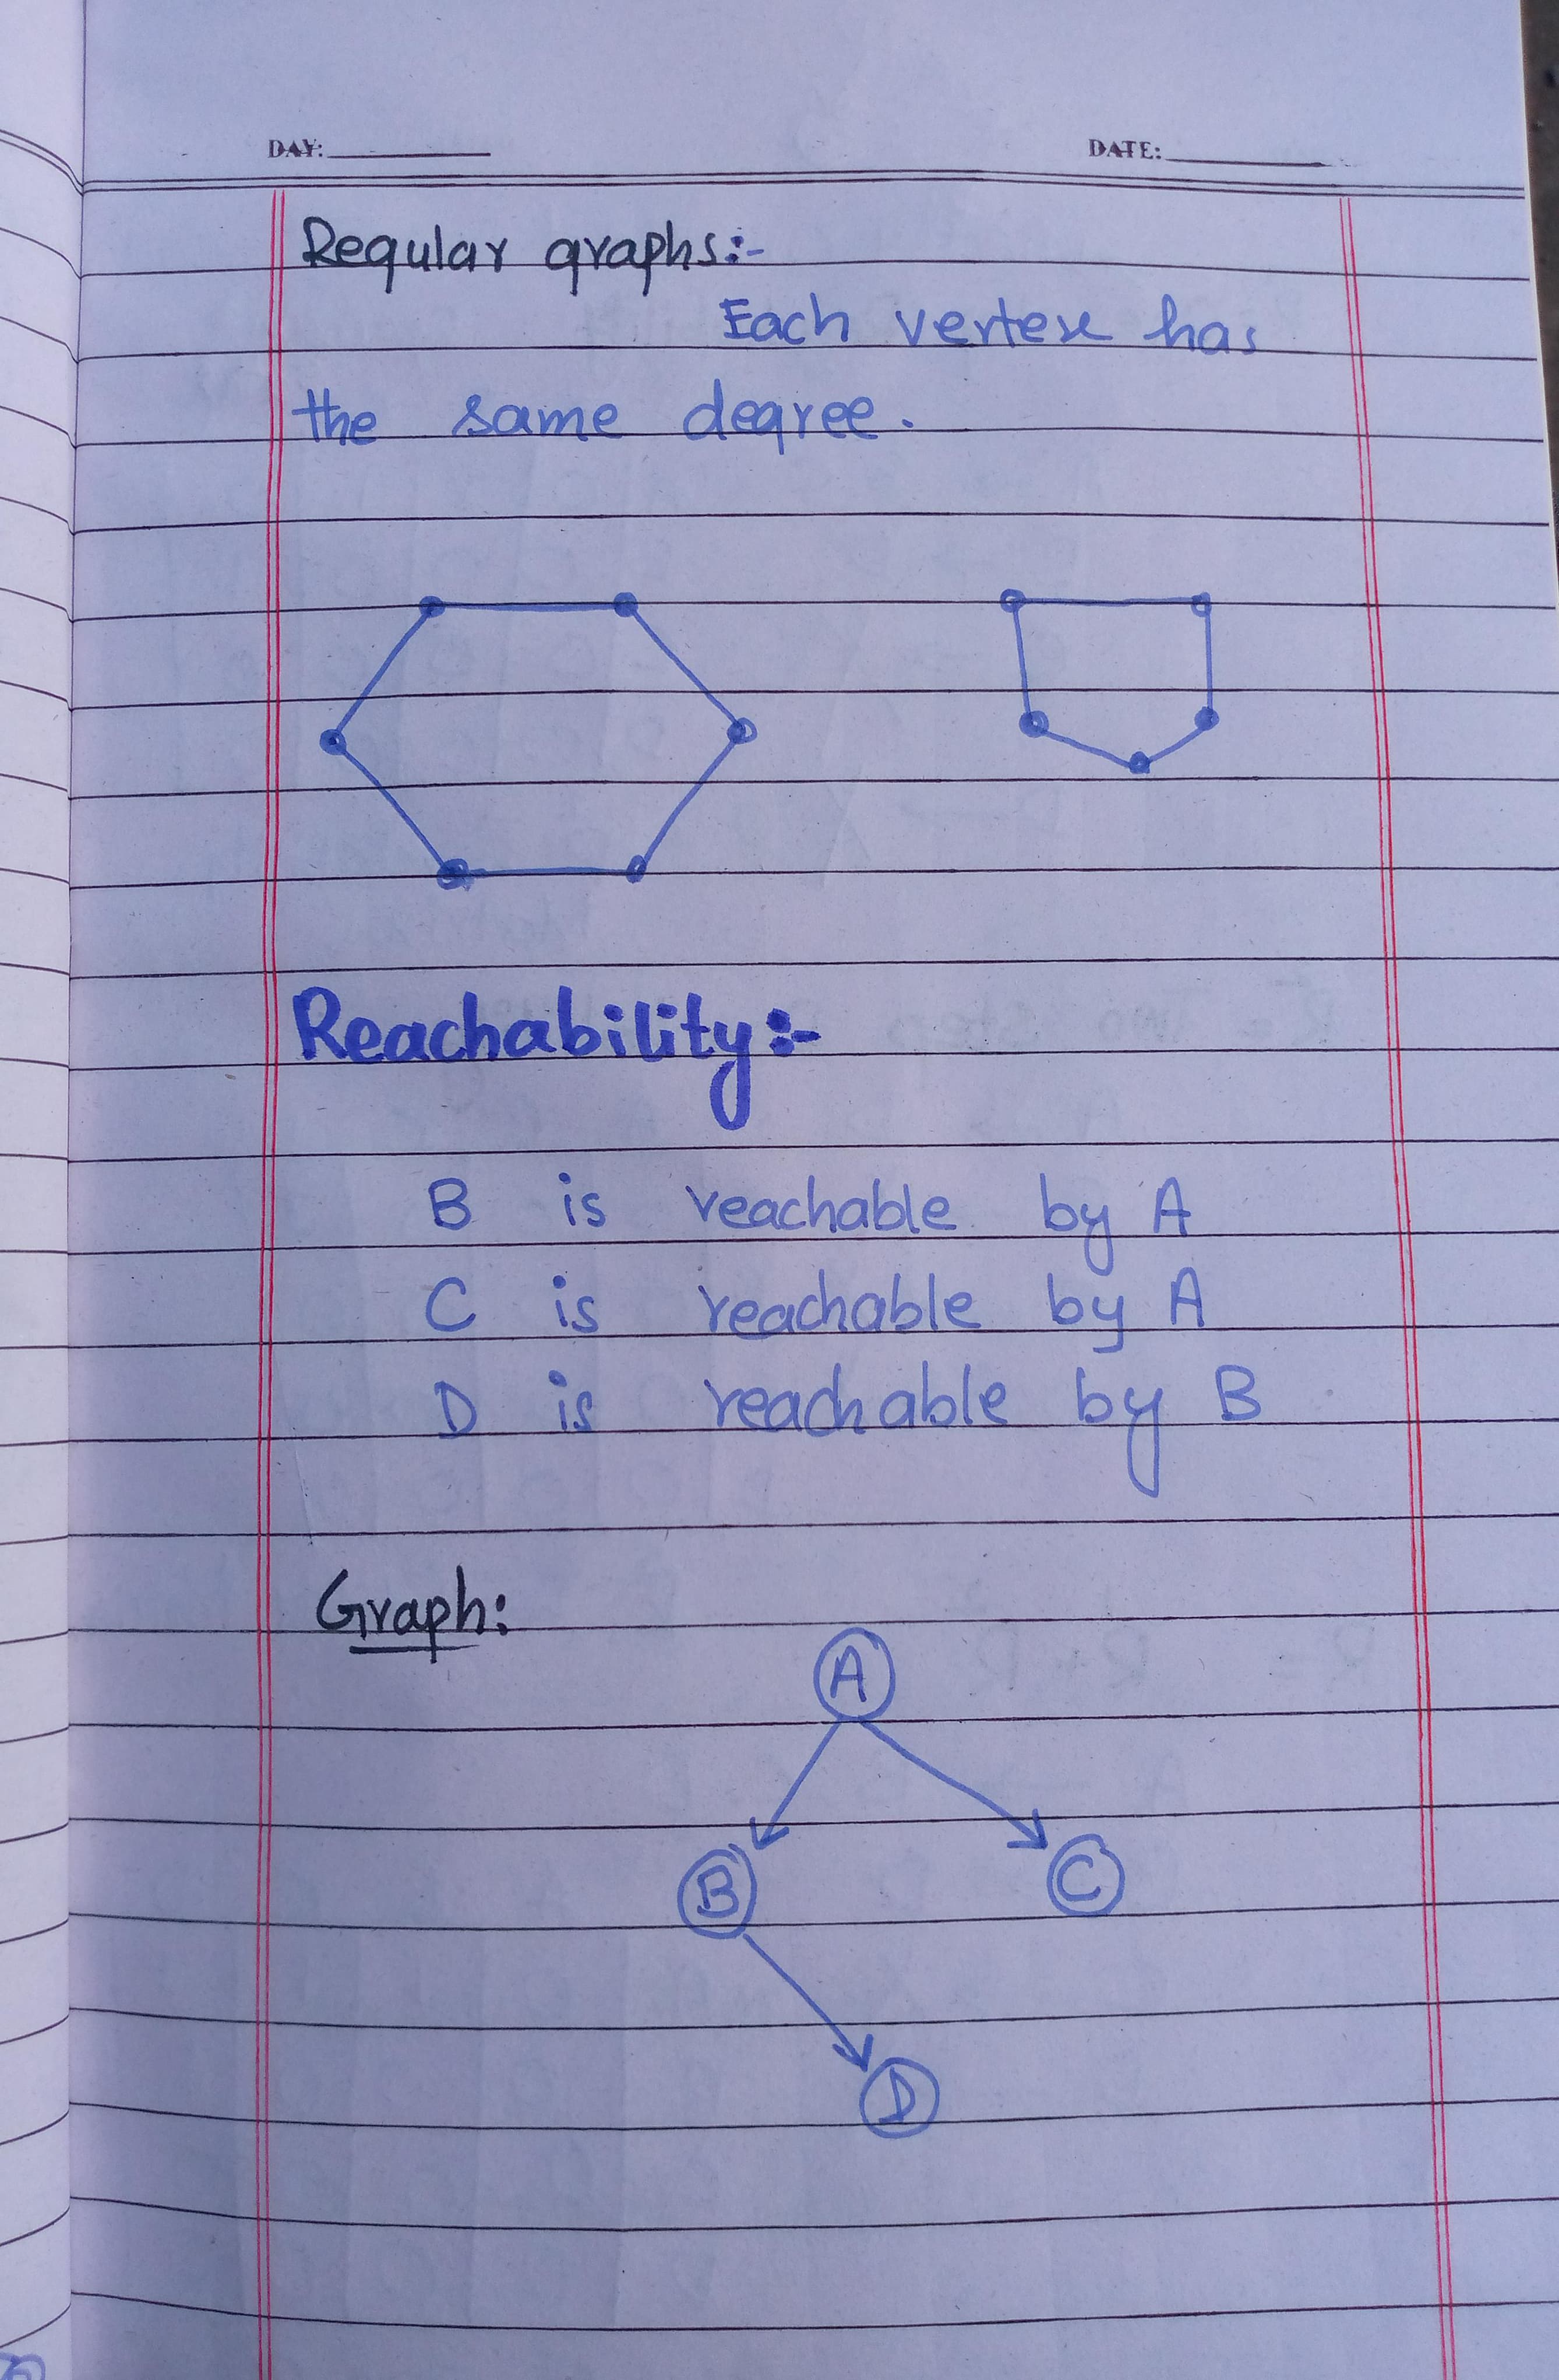 DAY:
DATE:
Regular graphs:-
Each vertex has
the same degree.
Reachability:-
B is reachable by A
C is reachable by A
D is reachable by B
Graph:
A
B
C
D